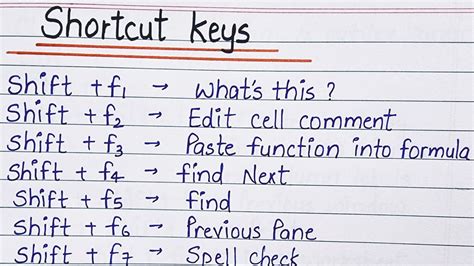 Shortcut keys
Shift + f1 → What's this ?
Shift + f2 → Edit cell comment
Shift + f3 → Paste function into formula
Shift + f4 → find Next
Shift + f5 → find
Shift + f6 → Previous Pane
Shift + f7 → Spell check